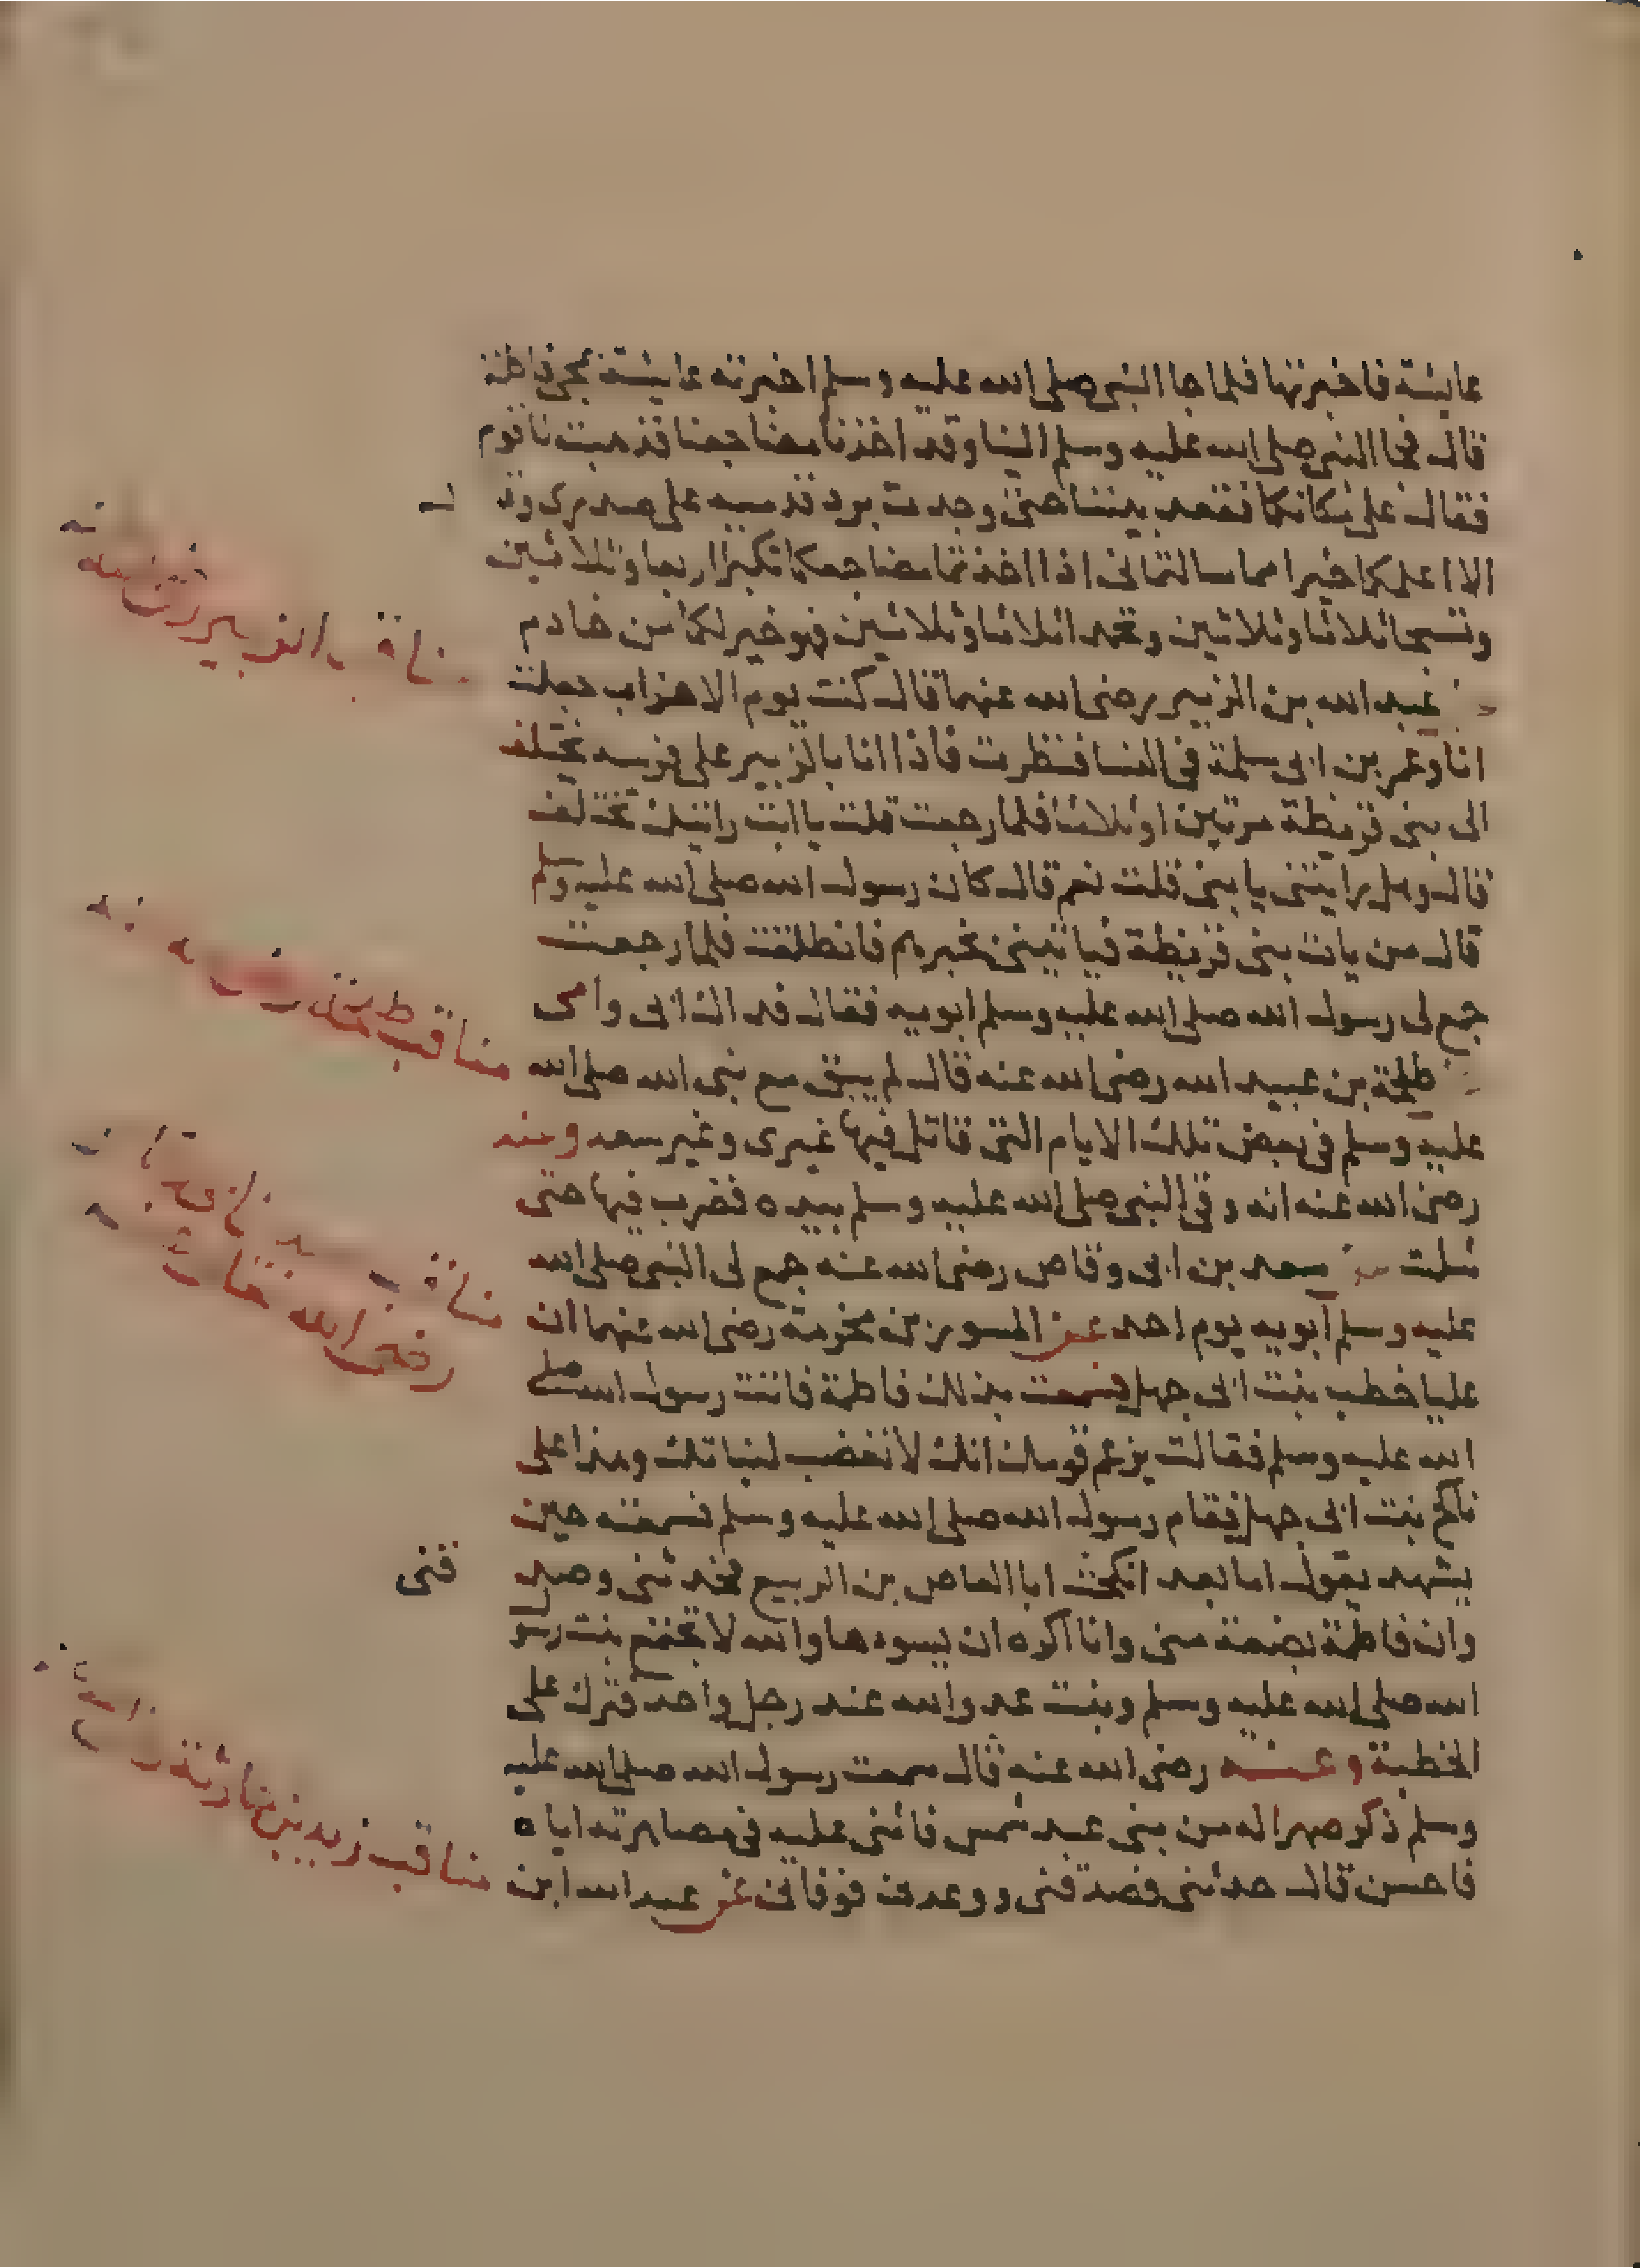 عايشة فاخبرتها فلما جا النبي صلى الله عليه وسلم اخبرته عايشة بمجي فاطمة
قال فجا النبي صلى الله عليه وسلم الينا وقد اخذنا مضاجعنا فذهبت لنا قوم
فقال على مكانكما فقعد بيننا حتى وجدت برد قدميه على صدري وقا
ل
الا اعلمكما خيرا مما سالتماني اذا اخذتما مضاجعكما تكبرا اربعا وثلاثين
وتسبحا ثلاثا وثلاثين وتحمدا ثلاثا وثلاثين فهو خير لكما من خادم
مناقب الزبير
عبد الله بن الزبير رضي الله عنهما قال كنت يوم الاحزاب جعلت
انا وعمر بن ابي سلمة في النسا فنظرت فاذا انا بالزبير على فرسه يختلف
الى بني قريظة مرتين او ثلاثا فلما رجعت قلت يا ابت رايتك تختلف
قال وهل رايتني يا بني قلت نعم قال كان رسول الله صلى الله عليه وسلم
قال من يات بني قريظة فياتيني بخبرهم فانطلقت فلما رجعت
جمع لي رسول الله صلى الله عليه وسلم ابويه فقال فداك ابي وامي
مناقب طلحة
طلحة بن عبيد الله رضي الله عنه قال لم يبق مع نبي الله صلى الله
عليه وسلم في بعض تلك الايام التي قاتل فيها غيري وغير سعد وعنه
رضي الله عنه انه وقى النبي صلى الله عليه وسلم بيده فضرب فيها حتى
مناقب سعد
رضي الله
شلت سعد بن ابي وقاص رضي الله عنه جمع لي النبي صلى الله
عليه وسلم ابويه يوم احد عن المسور بن مخرمة رضي الله عنهما ان
عليا خطب بنت ابي جهل فسمعت بذلك فاطمة فاتت رسول الله صلى
الله عليه وسلم فقالت يزعم قومك انك لا تغضب لبناتك وهذا على
ناكح بنت ابي جهل فقام رسول الله صلى الله عليه وسلم فسمعته حين
يتشهد يقول اما بعد انكحت ابا العاص بن الربيع فحدثني وصد
قني
وان فاطمة بضعة مني وانا اكره ان يسوءها والله لا تجتمع بنت رسول
الله صلى الله عليه وسلم وبنت عدو الله عند رجل واحد فترك على
الخطبة وعنه رضي الله عنه قال سمعت رسول الله صلى الله عليه
وسلم ذكر صهرا له من بني عبد شمس فاثنى عليه في مصاهرته اياه
مناقب زيد بن حارثة
فاحسن قال حدثني فصدقني ووعدني فوفاني عن عبد الله ابن